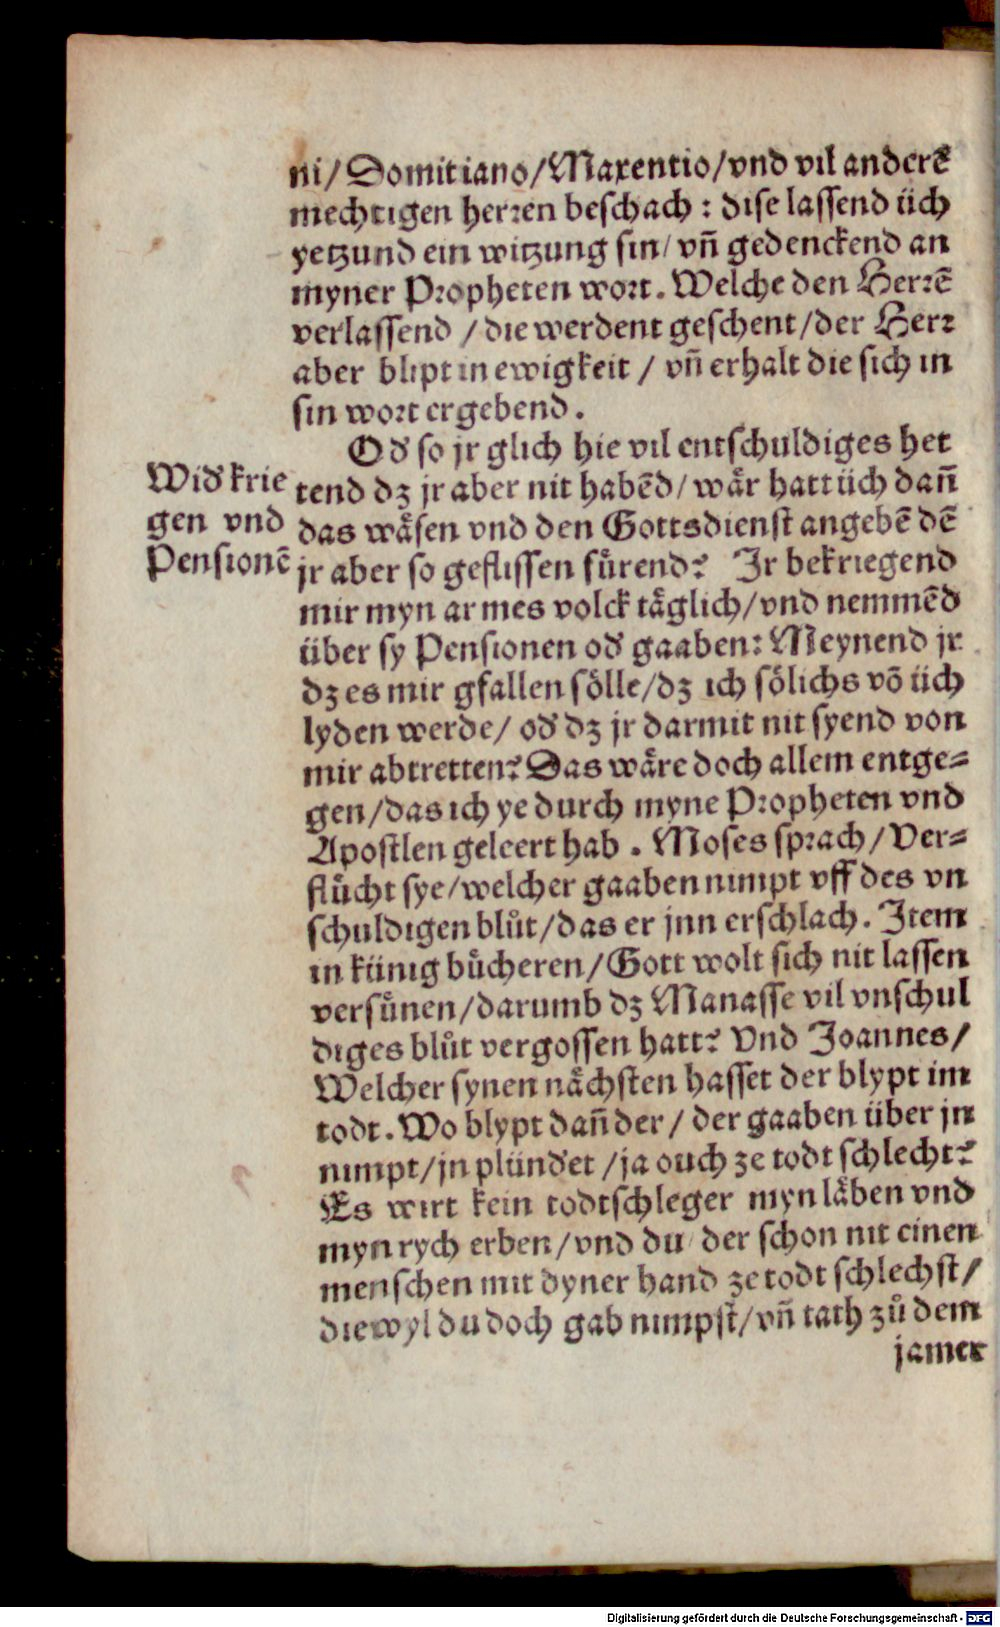 ni/ Domitiano/ Maxentio/ vnd vil anderē
mechtigen herren beschach: dise lassend üch
yetzund ein witzung sin/ vn̄ gedenckend an
myner Propheten wort. Welche den Herrē
verlassend / die werdent geschent/ der Herr
aber blipt in ewigkeit / vn̄ erhalt die sich in
sin wort ergebend.
Od̕ so jr glich hie vil entschuldiges het
Wid̕ krie
gen vnd
Pensionē
tend dz jr aber nit habēd/ wår hatt üch dan̄
das wåsen vnd den Gottsdienst angebē dē
jr aber so geflissen fůrend? Ir bekriegend
mir myn armes volck tåglich/ vnd nemmēd
über sy Pensionen od̕ gaaben: Meynend jr
dz es mir gfallen sölle/ dz ich sölichs vō üch
lyden werde/ od̕ dz jr darmit nit syend von
mir abtretten? Das wåre doch allem entge⸗
gen/ das ich ye durch myne Propheten vnd
Apostlen geleert hab. Moses sprach/ Ver⸗
flůcht sye/ welcher gaaben nimpt vff des vn
schuldigen blůt/ das er jnn erschlach. Item
in künig bůcheren/ Gott wolt sich nit lassen
versůnen/ darumb dz Manasse vil vnschul
diges blůt vergossen hatt? Vnd Joannes/
Welcher synen nåchsten hasset der blypt im
todt. Wo blypt dan̄ der / der gaaben über jn
nimpt/ jn plünd̕et / ja ouch ze todt schlecht?
Es wirt kein todtschleger myn låben vnd
myn rych erben/ vnd du/ der schon nit einen
menschen mit dyner hand ze todt schlechst/
diewyl du doch gab nimpst/ vn̄ tath zů dem
jamer
Digitalisierung gefördert durch die Deutsche Forschungsgemeinschaft - DFG